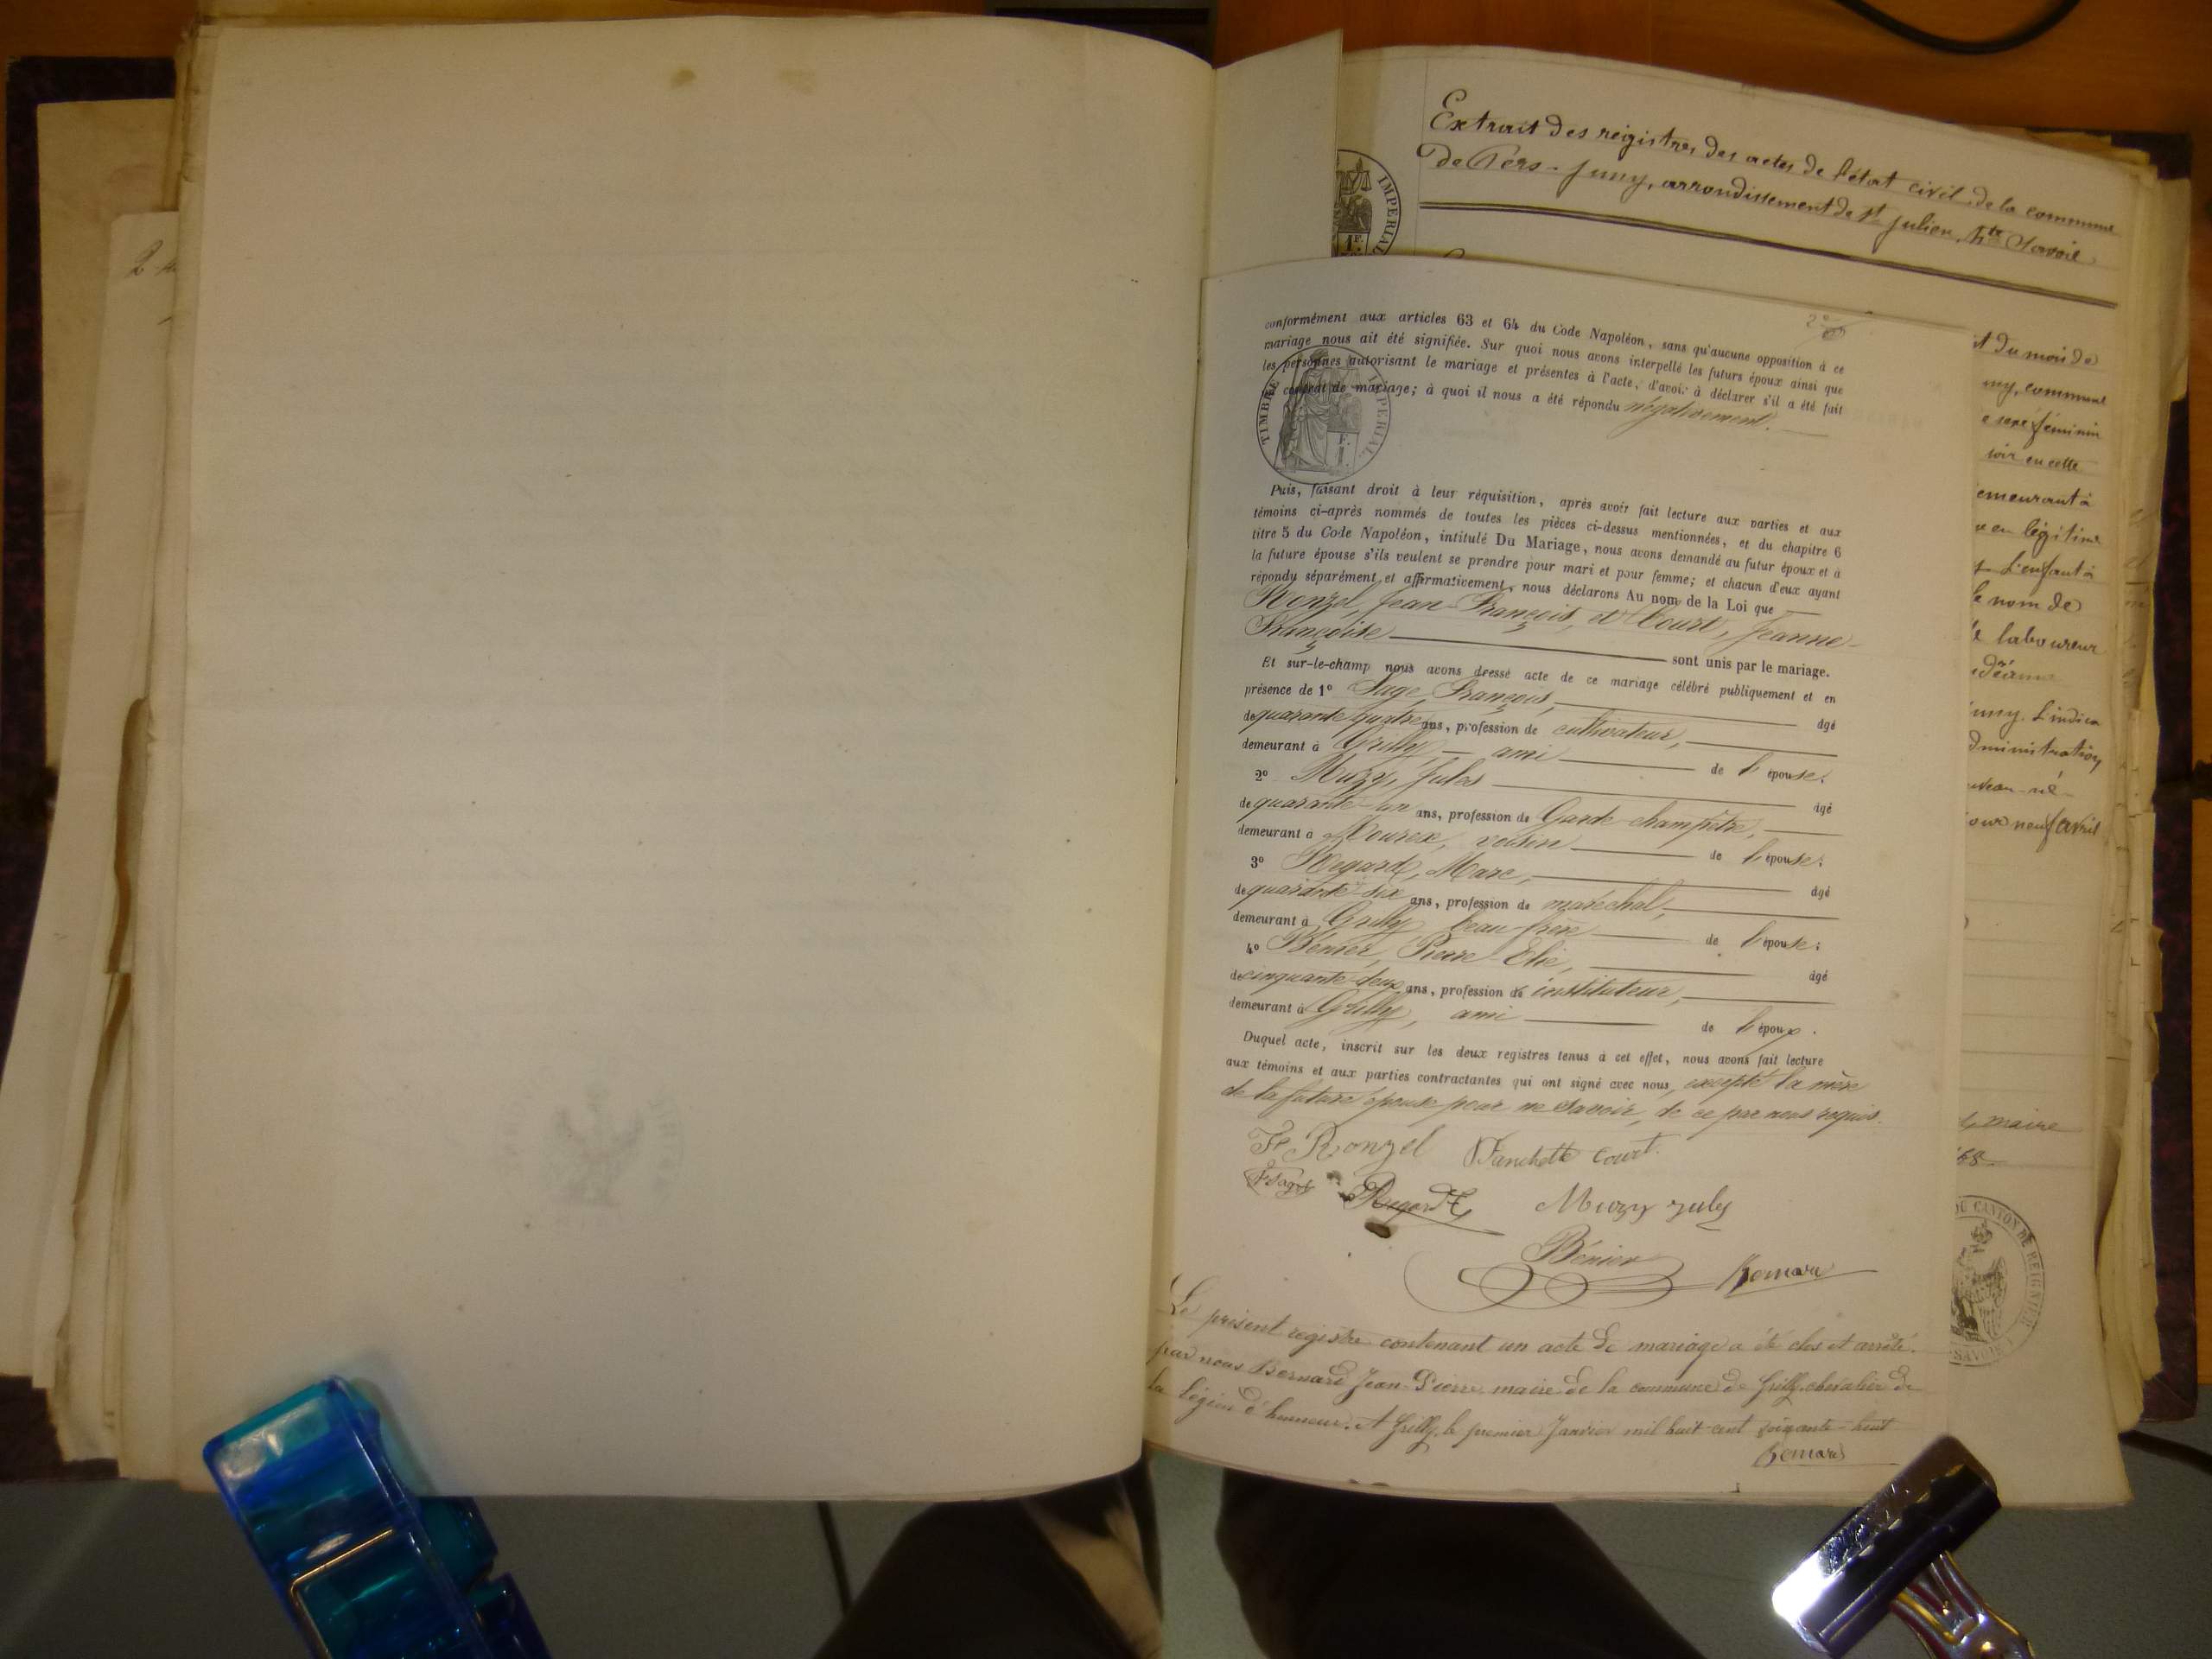 Extrait des régistres des actes de l'état civil de la commune
de Pers-Jussy, arrondissement de St Julien, hte Savoie
IMPERIAL
1 F.
conformément aux articles 63 et 64 du Code Napoléon, sans qu'aucune opposition à ce
mariage nous ait été signifiée. Sur quoi nous avons interpellé les futurs époux ainsi que
les personnes autorisant le mariage et présentes à l'acte, d'avoir à déclarer s'il a été fait
contrat de mariage; à quoi il nous a été répondu négativement.
TIMBRE IMPERIAL.
F.
1.
Puis, faisant droit à leur réquisition, après avoir fait lecture aux parties et aux
témoins ci-après nommés de toutes les pièces ci-dessus mentionnées, et du chapitre 6
titre 5 du Code Napoléon, intitulé Du Mariage, nous avons demandé au futur époux et à
la future épouse s'ils veulent se prendre pour mari et pour femme; et chacun d'eux ayant
répondu séparément et affirmativement, nous déclarons Au nom de la Loi que
Ronzel, Jean-François, et Court, Jeanne-
Françoise sont unis par le mariage.
Et sur-le-champ nous avons dressé acte de ce mariage célébré publiquement et en
présence de 1° Sage, François, âgé
de quarante quatre ans, profession de cultivateur,
demeurant à Grilly, ami de l'épouse.
2° Muzy, Jules âgé
de quarante-un ans, profession de Garde-champêtre,
demeurant à Mourex, voisin de l'épouse:
3° Regard, Marc, âgé
de quarante-six ans, profession de maréchal,
demeurant à Grilly, beau-frère de l'épouse:
4° Bénier, Pierre-Elie, âgé
de cinquante-deux ans, profession de instituteur,
demeurant à Grilly, ami de l'époux.
Duquel acte, inscrit sur les deux registres tenus à cet effet, nous avons fait lecture
aux témoins et aux parties contractantes qui ont signé avec nous, excepté la mère
de la future épouse pour ne savoir, de ce par nous requis.
Fs Ronzel Fanchette Court.
F Sage Regard Muzy Jules
Bénier Bernard
Le présent registre contenant un acte de mariage a été clos et arrêté
par nous Bernard Jean-Pierre maire de la commune de Grilly, chevalier de
la Légion d'honneur. A Grilly, le premier Janvier mil huit-cent soixante-huit
Bernard
it du mois de
commune
sexe féminin
soir en cette
emeurant à
en légitime
L'enfant à
le nom de
laboureur
L'indica
dministration
nouveau-né
jour neuf avril
maire
68
DU CANTON DE REIGNIER
SAVOIE